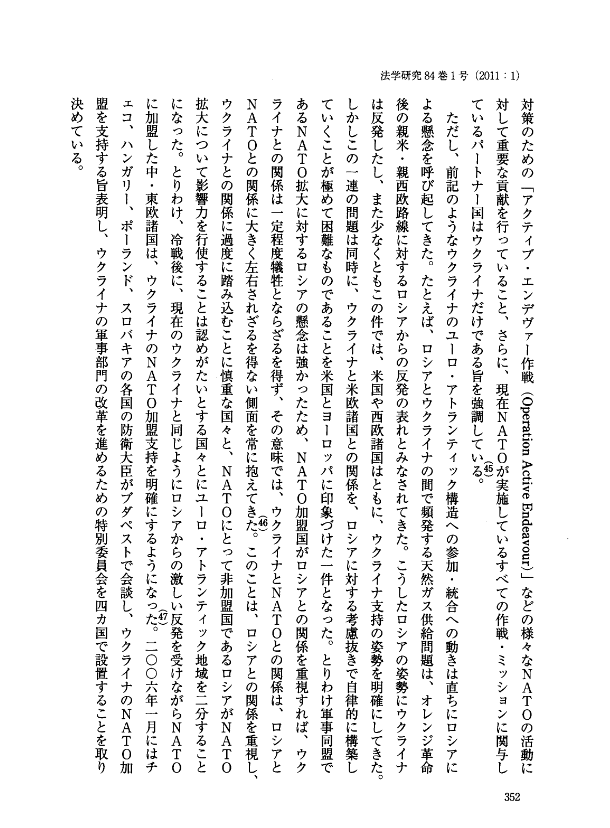 法学研究 84 巻 1 号 (2011:1)
対策のための「アクティブ・エンデヴァー作戦(Operation Active Endeavour)」などの様々なNATOの活動に
対して重要な貢献を行っていること、さらに、現在NATOが実施しているすべての作戦・ミッションに関与し
ているパートナー国はウクライナだけである旨を強調している。(45)
ただし、前記のようなウクライナのユーロ・アトランティック構造への参加・統合への動きは直ちにロシアに
よる懸念を呼び起してきた。たとえば、ロシアとウクライナの間で頻発する天然ガス供給問題は、オレンジ革命
後の親米・親西欧路線に対するロシアからの反発の表れとみなされてきた。こうしたロシアの姿勢にウクライナ
は反発したし、また少なくともこの件では、米国や西欧諸国はともに、ウクライナ支持の姿勢を明確にしてきた。
しかしこの一連の問題は同時に、ウクライナと米欧諸国との関係を、ロシアに対する考慮抜きで自律的に構築し
ていくことが極めて困難なものであることを米国とヨーロッパに印象づけた一件となった。とりわけ軍事同盟で
あるNATO拡大に対するロシアの懸念は強かったため、NATO加盟国がロシアとの関係を重視すれば、ウク
ライナとの関係は一定程度犠牲とならざるを得ず、その意味では、ウクライナとNATOとの関係は、ロシアと
NATOとの関係に大きく左右されざるを得ない側面を常に抱えてきた。(46)このことは、ロシアとの関係を重視し、
ウクライナとの関係に過度に踏み込むことに慎重な国々と、NATOにとって非加盟国であるロシアがNATO
拡大について影響力を行使することは認めがたいとする国々とにユーロ・アトランティック地域を二分すること
になった。とりわけ、冷戦後に、現在のウクライナと同じようにロシアからの激しい反発を受けながらNATO
に加盟した中・東欧諸国は、ウクライナのNATO加盟支持を明確にするようになった。(47)二〇〇六年一月にはチ
ェコ、ハンガリー、ポーランド、スロバキアの各国の防衛大臣がブダペストで会談し、ウクライナのNATO加
盟を支持する旨表明し、ウクライナの軍事部門の改革を進めるための特別委員会を四カ国で設置することを取り
決めている。
352